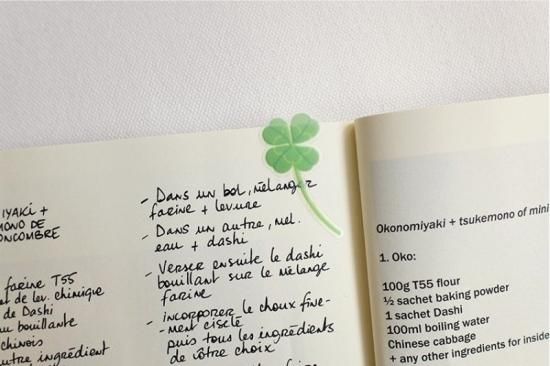 IYAKI +
MONO DE
ONCOMBRE
farine T55
de lev. chimique
de Dashi
bouillante
chinois
autre ingrédient
- Dans un bol, mélanger
farine + levure
- Dans un autre, mel.
eau + dashi
- Verser ensuite le dashi
bouillant sur le mélange
farine
- incorporer le choux fine-
-ment ciselé
puis tous les ingrédients
de vôtre choix
Okonomiyaki + tsukemono of mini
1. Oko:
100g T55 flour
½ sachet baking powder
1 sachet Dashi
100ml boiling water
Chinese cabbage
+ any other ingredients for inside